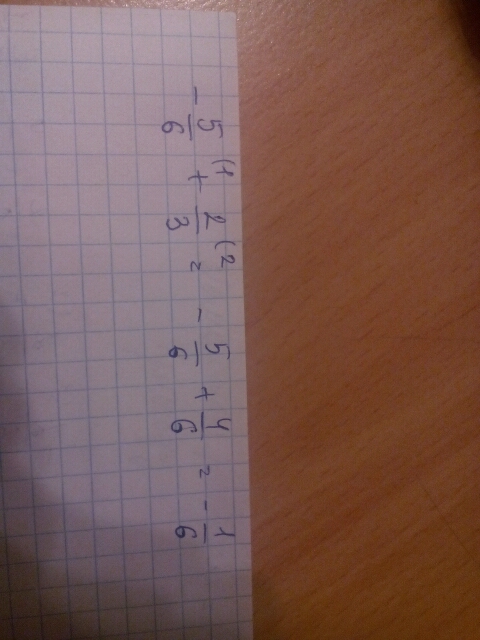 - 5/6 (1 + 2/3 (2 = - 5/6 + 4/6 = - 1/6